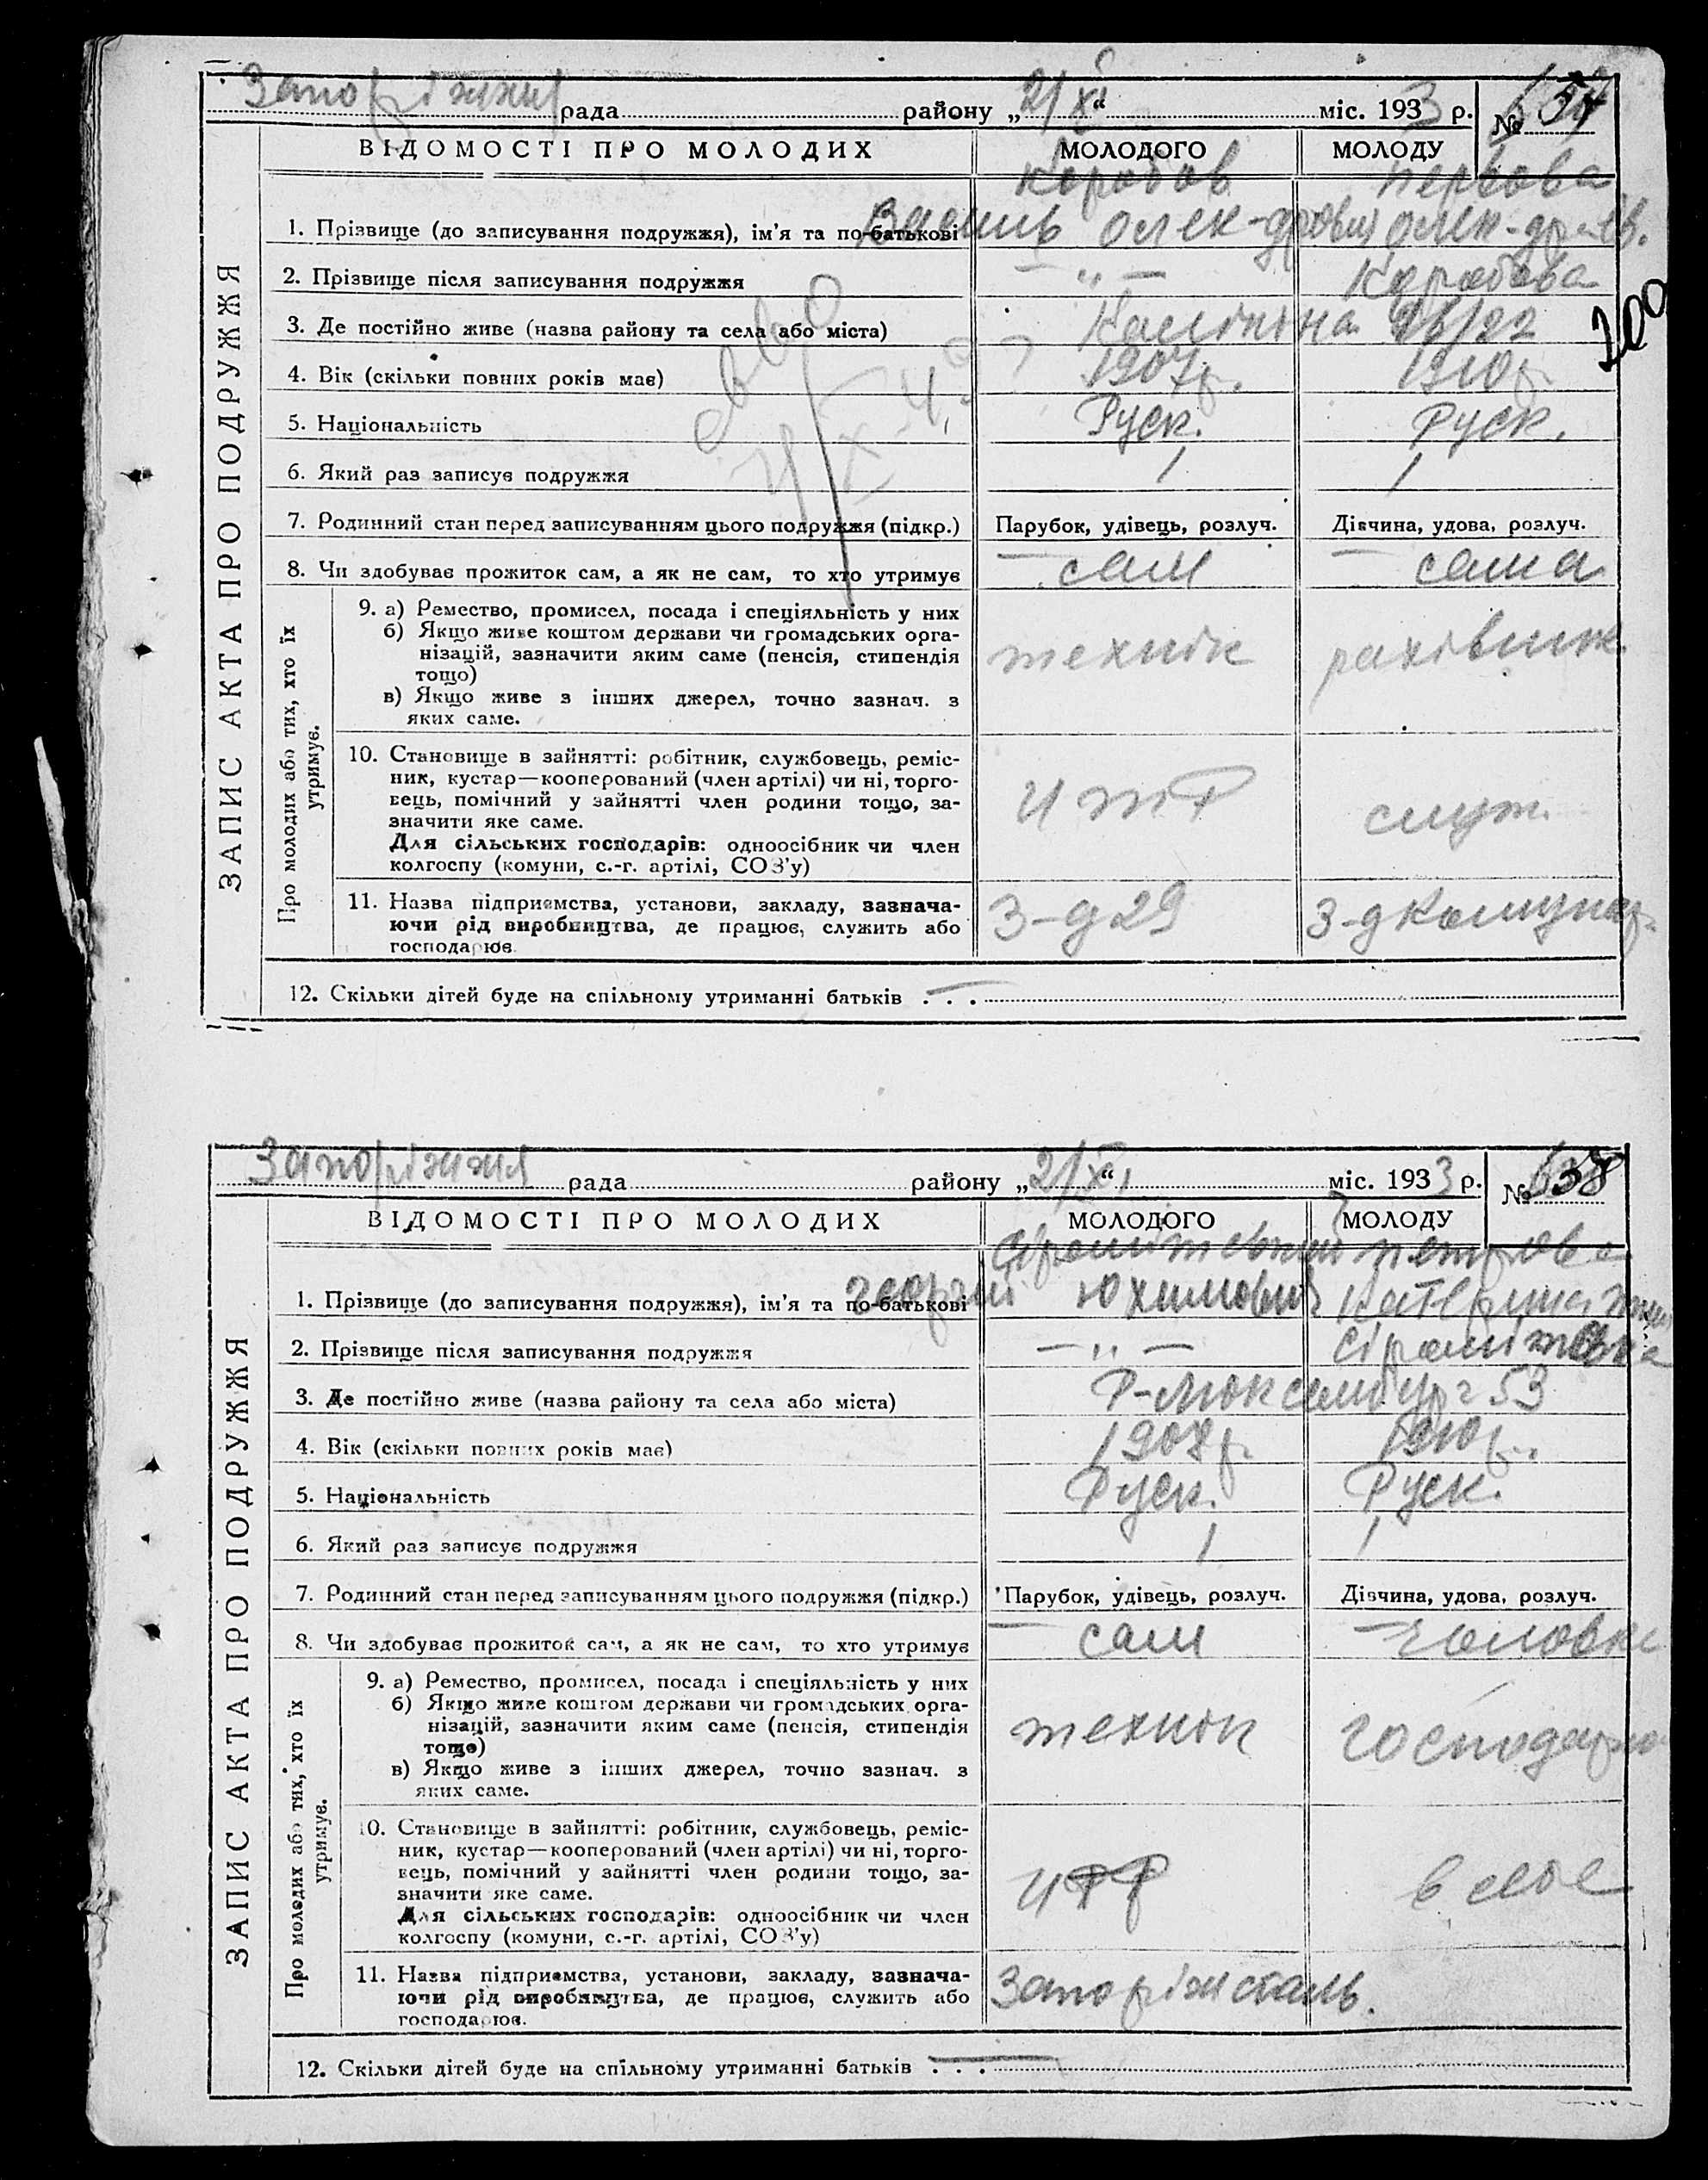 Запоріжжя рада району „21/XI“ міс. 1933 р. № 657
ВІДОМОСТІ ПРО МОЛОДИХ МОЛОДОГО МОЛОДУ
Коробов Первова
1. Прізвище (до записування подружжя), ім’я та по-батькові Василь Олек-дрович Олек-дра
2. Прізвище після записування подружжя — „ — Коробова
3. Де постійно живе (назва району та села або міста) Калініна 22
4. Вік (скільки повних років має) 1907р. 1910р.
200
5. Національність Руск. Руск.
6. Який раз записує подружжя 1 1
7. Родинний стан перед записуванням цього подружжя (підкр.) Парубок, удівець, розлуч. Дівчина, удова, розлуч.
8. Чи здобуває прожиток сам, а як не сам, то хто утримує сам сама
ЗАПИС АКТА ПРО ПОДРУЖЖЯ
Про молодих або тих, хто їх утримує.
9. а) Ремество, промисел, посада і спеціяльність у них
б) Якщо живе коштом держави чи громадських орга-
нізацій, зазначити яким саме (пенсія, стипендія
тощо)
технік рахівник
в) Якщо живе з інших джерел, точно зазнач. з
яких саме.
10. Становище в зайнятті: робітник, службовець, реміс-
ник, кустар—кооперований (член артілі) чи ні, торго-
вець, помічний у зайнятті член родини тощо, за-
значити яке саме.
ИТР служ.
Для сільських господарів: одноосібник чи член
колгоспу (комуни, с.-г. артілі, СОЗ’у)
11. Назва підприємства, установи, закладу, зазнача-
ючи рід виробництва, де працює, служить або
господарює.
З-д 29 З-д Комунар
12. Скільки дітей буде на спільному утриманні батьків . . . —
Запоріжжя рада району „21/XI“ міс. 1933 р. № 658
ВІДОМОСТІ ПРО МОЛОДИХ МОЛОДОГО МОЛОДУ
Петрова
1. Прізвище (до записування подружжя), ім’я та по-батькові Георгій Юхимович Катерина
2. Прізвище після записування подружжя — „ —
3. Де постійно живе (назва району та села або міста) Р-Люксембург 53
4. Вік (скільки повних років має) 1908р. 1910р.
5. Національність Руск. Руск.
6. Який раз записує подружжя 1 1
7. Родинний стан перед записуванням цього подружжя (підкр.) Парубок, удівець, розлуч. Дівчина, удова, розлуч.
8. Чи здобуває прожиток сам, а як не сам, то хто утримує сам
ЗАПИС АКТА ПРО ПОДРУЖЖЯ
Про молодих або тих, хто їх утримує.
9. а) Ремество, промисел, посада і спеціяльність у них
б) Якщо живе коштом держави чи громадських орга-
нізацій, зазначити яким саме (пенсія, стипендія
тощо)
технік
в) Якщо живе з інших джерел, точно зазнач. з
яких саме.
10. Становище в зайнятті: робітник, службовець, реміс-
ник, кустар—кооперований (член артілі) чи ні, торго-
вець, помічний у зайнятті член родини тощо, за-
значити яке саме.
Для сільських господарів: одноосібник чи член
колгоспу (комуни, с.-г. артілі, СОЗ’у)
11. Назва підприємства, установи, закладу, зазнача-
ючи рід виробництва, де працює, служить або
господарює.
Запоріжсталь.
12. Скільки дітей буде на спільному утриманні батьків . . . —